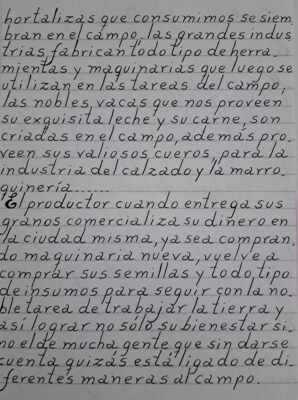 hortalizas que consumimos se siem
bran en el campo, las grandes indus
trias fabrican todo tipo de herra.
mientas y maquinarias que luego se
utilizan en las tareas del campo,
las nobles, vacas que nos proveen
su exquisita leche y su carne, son
criadas en el campo, además pro.
veen sus valiosos cueros, para la
industria del calzado y la marro.
quinería......
El productor cuando entrega sus
granos comercializa su dinero en
la ciudad misma, ya sea compran.
do maquinaria nueva, vuelve a
comprar sus semillas y todo, tipo
de insumos para seguir con la no.
ble tarea de trabajar la tierra y
así lograr no sólo su bienestar si.
no el de mucha gente, que sin darse
cuenta quizás está ligado de di.
ferentes maneras al campo.